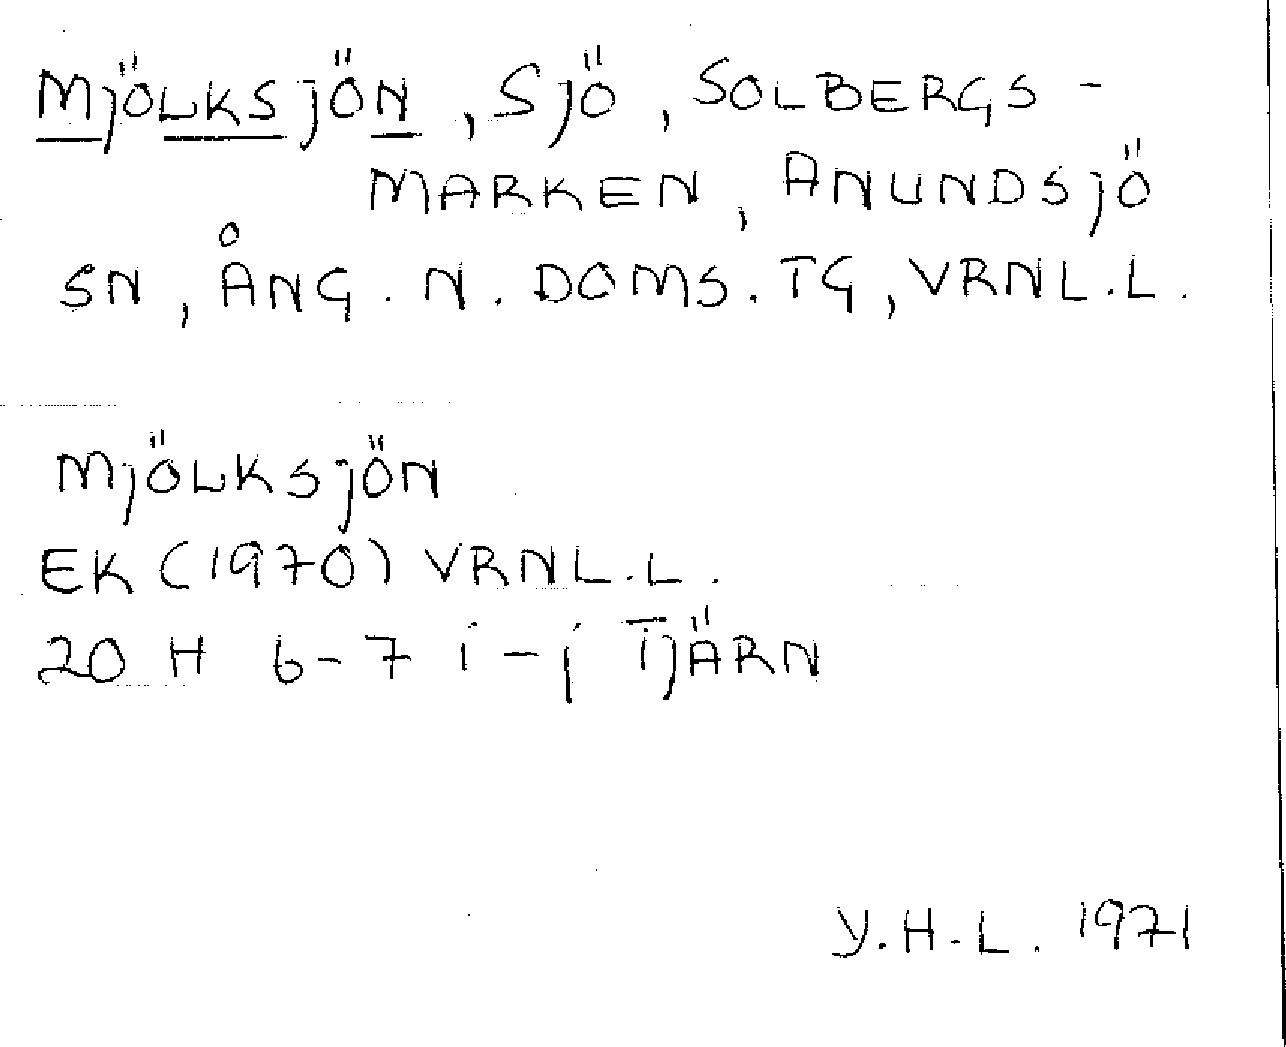 MJÖLKSJÖN, SJÖ, SOLBERGS-
MARKEN, ANUNDSJÖ
SN, ÅNG. N. DOMS. TG, VRNL.L.
MJÖLKSJÖN
EK (1970) VRNL.L.
20 H 6-7 i-j TJÄRN
Y.H-L. 1971